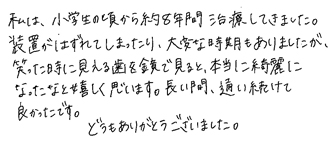 私は、小学生の頃から約8年間治療してきました。
装置がはずれてしまったり、大変な時期もありましたが、
笑った時に見える歯を鏡で見ると、本当に綺麗に
なったなと嬉しく思います。長い間、通い続けて
良かったです。
どうもありがとうございました。